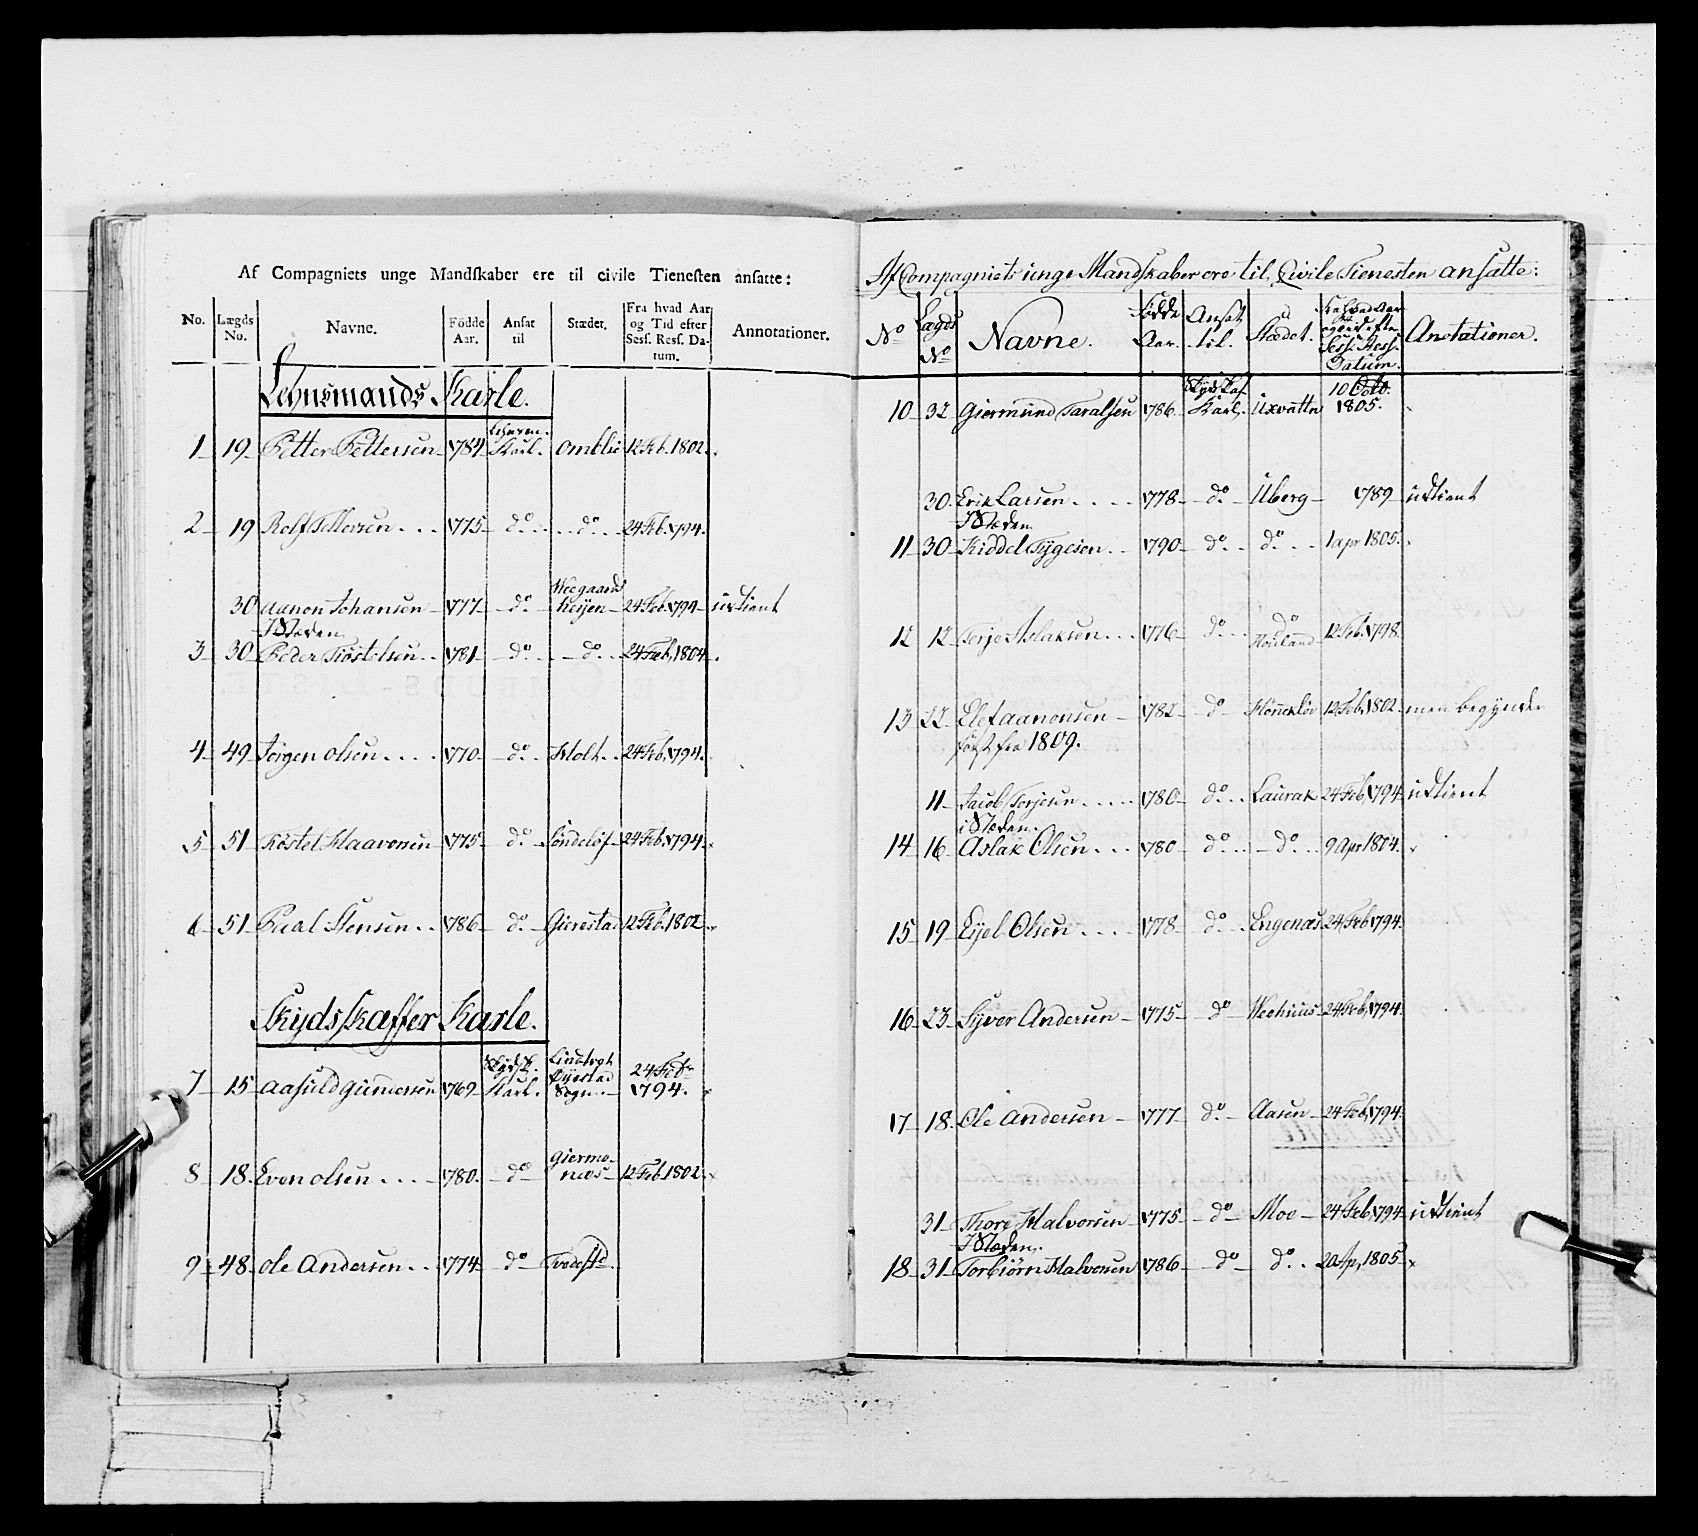 Af Compagniets unge Mandskaber ere til civile Tienesten ansatte:
No. Lægds No. Navne. Födde Aar. Ansat til Stædet. Fra hvad Aar og Tid efter Sess. Ress. Datum. Annotationer.
Lehnsmands Karle.
1 19 Petter Pettersen 1784 Lehnsm. Karl. Omblie 12 Feb. 1802.
2 19 Rolf Tellefsen 1775 do do 24 Feb. 1794.
30 Aanon Johansen 1777 do Weegaards heyen 24 Feb. 1794 udtient
I Steden
3 30 Peder Kiøstelsen 1781 do do 24 Feb. 1804
4 49 Jørgen Olsen 1770 do Holt 24 Feb. 1794.
5 51 Kiøstel Haavorsen 1775 do Søndeløf 24 Feb. 1794.
6 51 Paal Stensen 1786 do Gierestad 12 Feb. 1802
Skydsskaffer Karle.
7 15 Aasuld Gundersen 1769 Skydsk. Karl. Øyestad Sogn 24 Feb. 1794.
8 18 Even Olsen 1780. do Giermones 12 Feb. 1802
9 48 Ole Andersen 1774 do Tvedest.
Af Compagniets unge Mandskaber ere til Civile Tienesten ansatte:
No Lægds No Navne. Födde Aar. Ansat til. Stædet. Fra hvad Aar og Tid efter Sess. Ress. Datum. Anotationer.
10 32 Giermund Taralsen 1786 Skyds Skaf. Karl, Uxvatne 10 Octo. 1805.
30 Erik Larsen 1778 do Uberg 1789 udtient
I Steden
11 30 Kiddel Tygesen 1790 do do 1 apr 1805.
12 12 Terje Aslaksen 1776 do do Houland 12 Feb. 1798.
13 22 Elef Aanonsen 1782 do 12 Feb. 1802 men begynder
først fra 1809.
11 Jacob Terjesen 1780 do Laurak 24 Feb. 1794 udtient
i Steden
14 16 Aslak Olsen 1780 do do 9 Apr 1804.
15 19 Eijel Olsen 1778 do Engenæs 24 Feb. 1794.
16 23 Syver Andersen 1775 do Weehuus 24 Feb. 1794.
17 18 Ole Andersen 1777 do Aasen 24 Feb. 1794
31 Thore Halvorsen 1775 do Moe 24 Feb. 1794 udtient
I Steden
18 31 Torbiørn Halvorsen 1786 do do 20 Ap. 1805